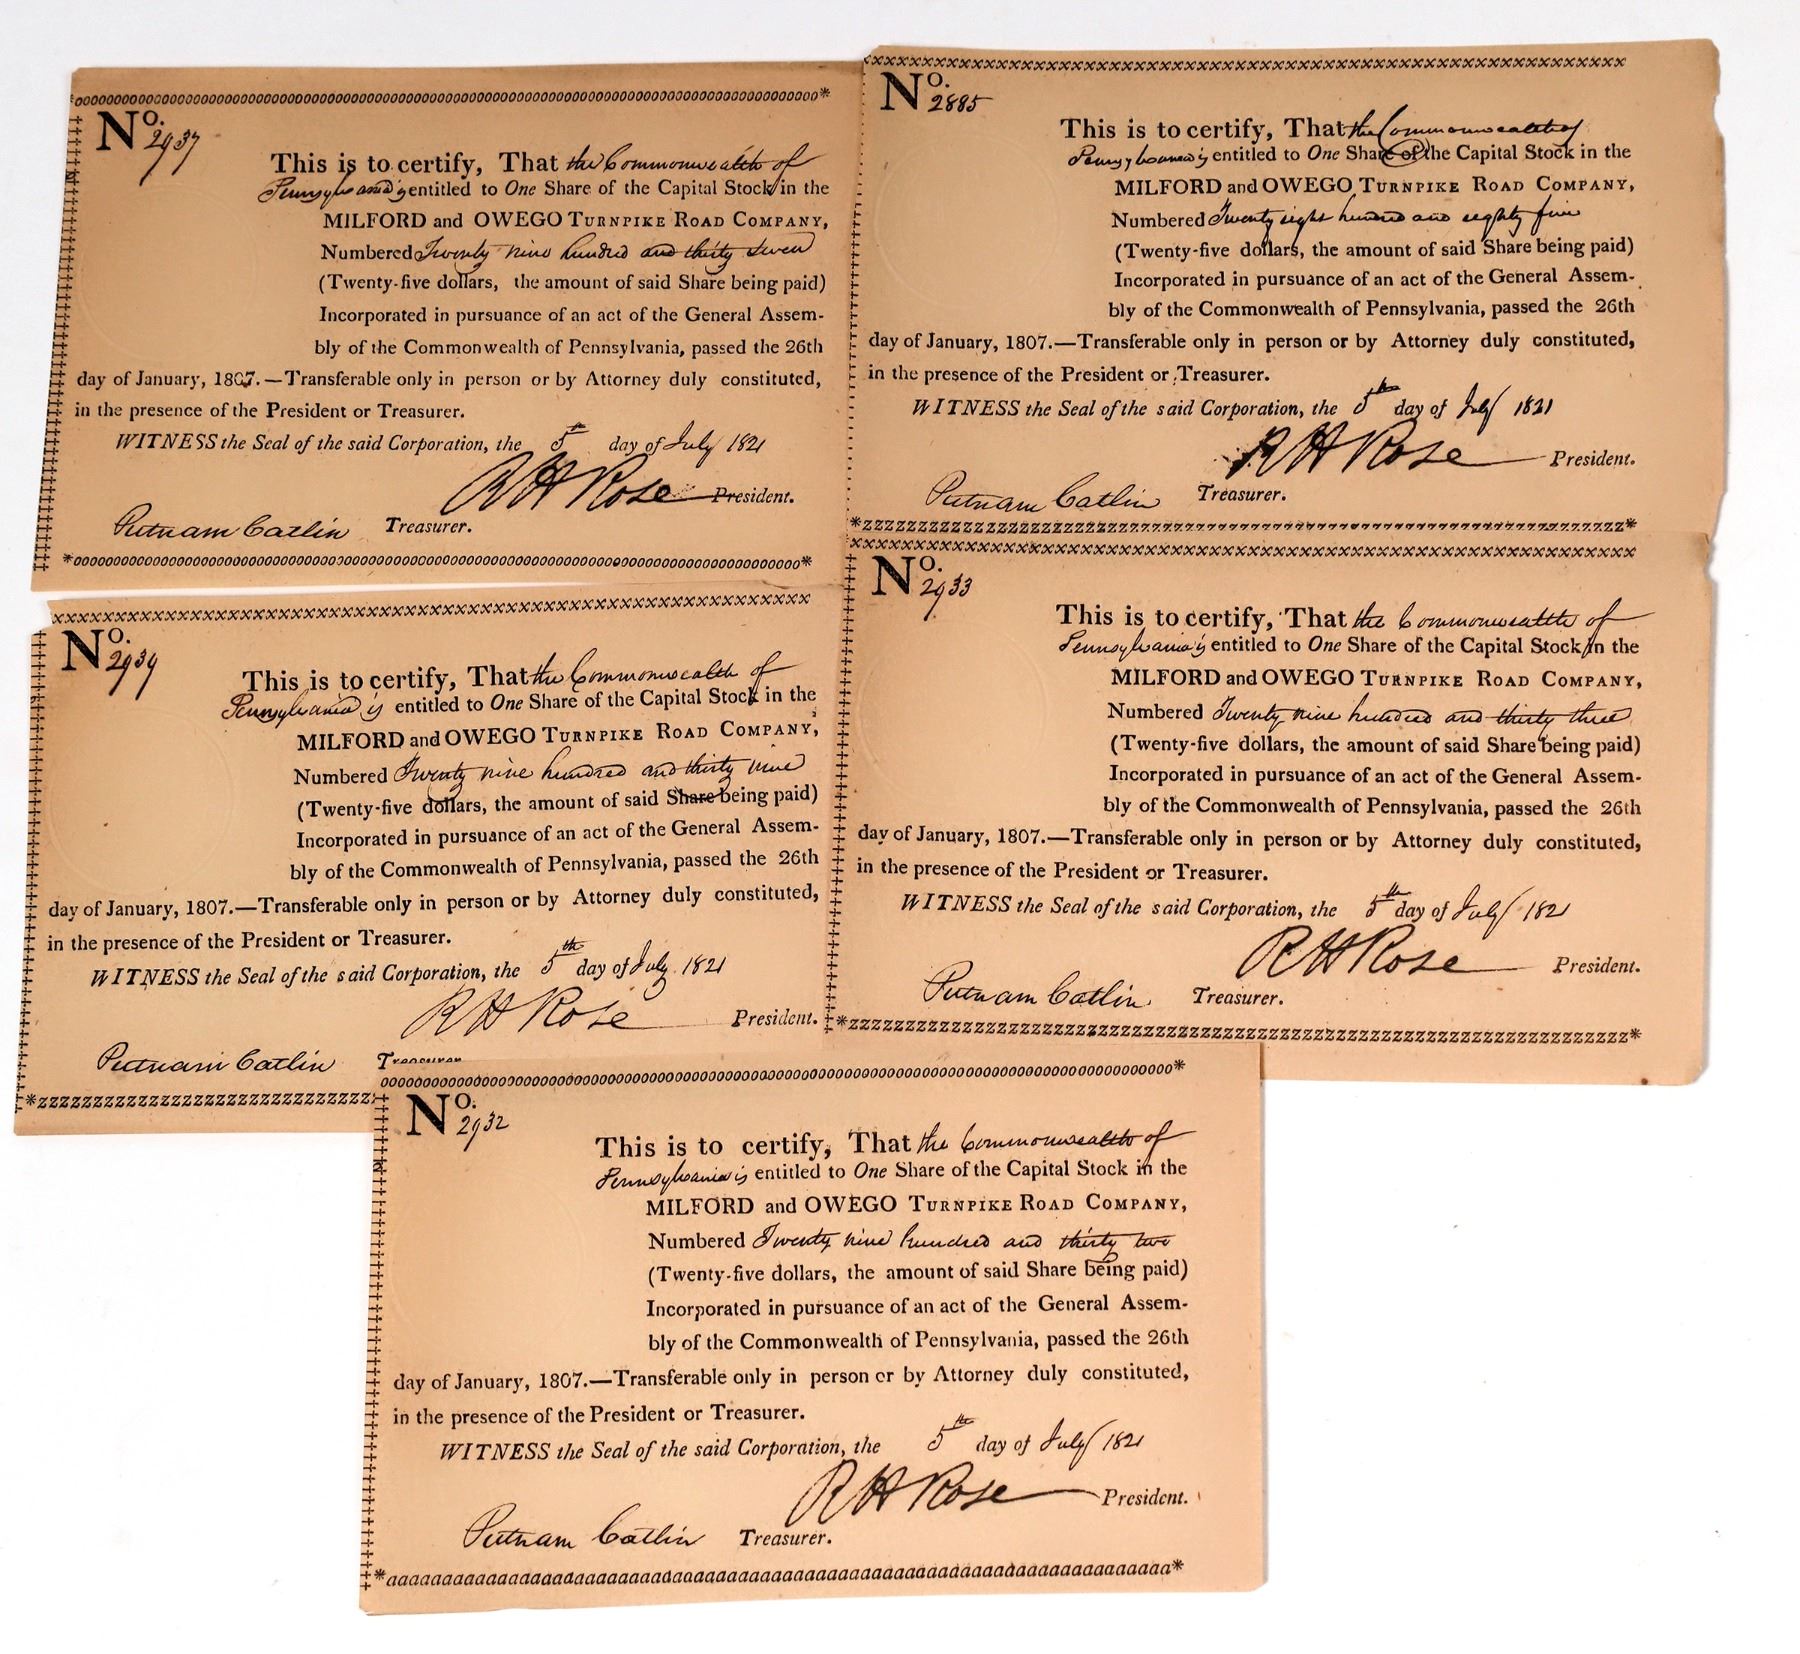 No. 2937
This is to certify, That the Commonwealth of
Pennsylvania is entitled to One Share of the Capital Stock in the
MILFORD and OWEGO TURNPIKE ROAD COMPANY,
Numbered Twenty nine hundred and thirty Seven
(Twenty-five dollars, the amount of said Share being paid)
Incorporated in pursuance of an act of the General Assem-
bly of the Commonwealth of Pennsylvania, passed the 26th
day of January, 1807.—Transferable only in person or by Attorney duly constituted,
in the presence of the President or Treasurer.
WITNESS the Seal of the said Corporation, the 5th day of July 1821
R H Rose President.
Putnam Catlin Treasurer.
No. 2885
This is to certify, That the Commonwealth of
Pennsylvania is entitled to One Share of the Capital Stock in the
MILFORD and OWEGO TURNPIKE ROAD COMPANY,
Numbered Twenty eight hundred and eighty five
(Twenty-five dollars, the amount of said Share being paid)
Incorporated in pursuance of an act of the General Assem-
bly of the Commonwealth of Pennsylvania, passed the 26th
day of January, 1807.—Transferable only in person or by Attorney duly constituted,
in the presence of the President or Treasurer.
WITNESS the Seal of the said Corporation, the 5th day of July 1821
R H Rose President.
Putnam Catlin Treasurer.
No. 2939
This is to certify, That the Commonwealth of
Pennsylvania is entitled to One Share of the Capital Stock in the
MILFORD and OWEGO TURNPIKE ROAD COMPANY,
Numbered Twenty nine hundred and thirty nine
(Twenty-five dollars, the amount of said Share being paid)
Incorporated in pursuance of an act of the General Assem-
bly of the Commonwealth of Pennsylvania, passed the 26th
day of January, 1807.—Transferable only in person or by Attorney duly constituted,
in the presence of the President or Treasurer.
WITNESS the Seal of the said Corporation, the 5th day of July 1821
R H Rose President.
Putnam Catlin Treasurer
No. 2933
This is to certify, That the Commonwealth of
Pennsylvania is entitled to One Share of the Capital Stock in the
MILFORD and OWEGO TURNPIKE ROAD COMPANY,
Numbered Twenty nine hundred and thirty three
(Twenty-five dollars, the amount of said Share being paid)
Incorporated in pursuance of an act of the General Assem-
bly of the Commonwealth of Pennsylvania, passed the 26th
day of January, 1807.—Transferable only in person or by Attorney duly constituted,
in the presence of the President or Treasurer.
WITNESS the Seal of the said Corporation, the 5th day of July 1821
R H Rose President.
Putnam Catlin Treasurer.
No. 2932
This is to certify, That the Commonwealth of
Pennsylvania is entitled to One Share of the Capital Stock in the
MILFORD and OWEGO TURNPIKE ROAD COMPANY,
Numbered Twenty nine hundred and thirty two
(Twenty-five dollars, the amount of said Share being paid)
Incorporated in pursuance of an act of the General Assem-
bly of the Commonwealth of Pennsylvania, passed the 26th
day of January, 1807.—Transferable only in person or by Attorney duly constituted,
in the presence of the President or Treasurer.
WITNESS the Seal of the said Corporation, the 5th day of July 1821
R H Rose President.
Putnam Catlin Treasurer.